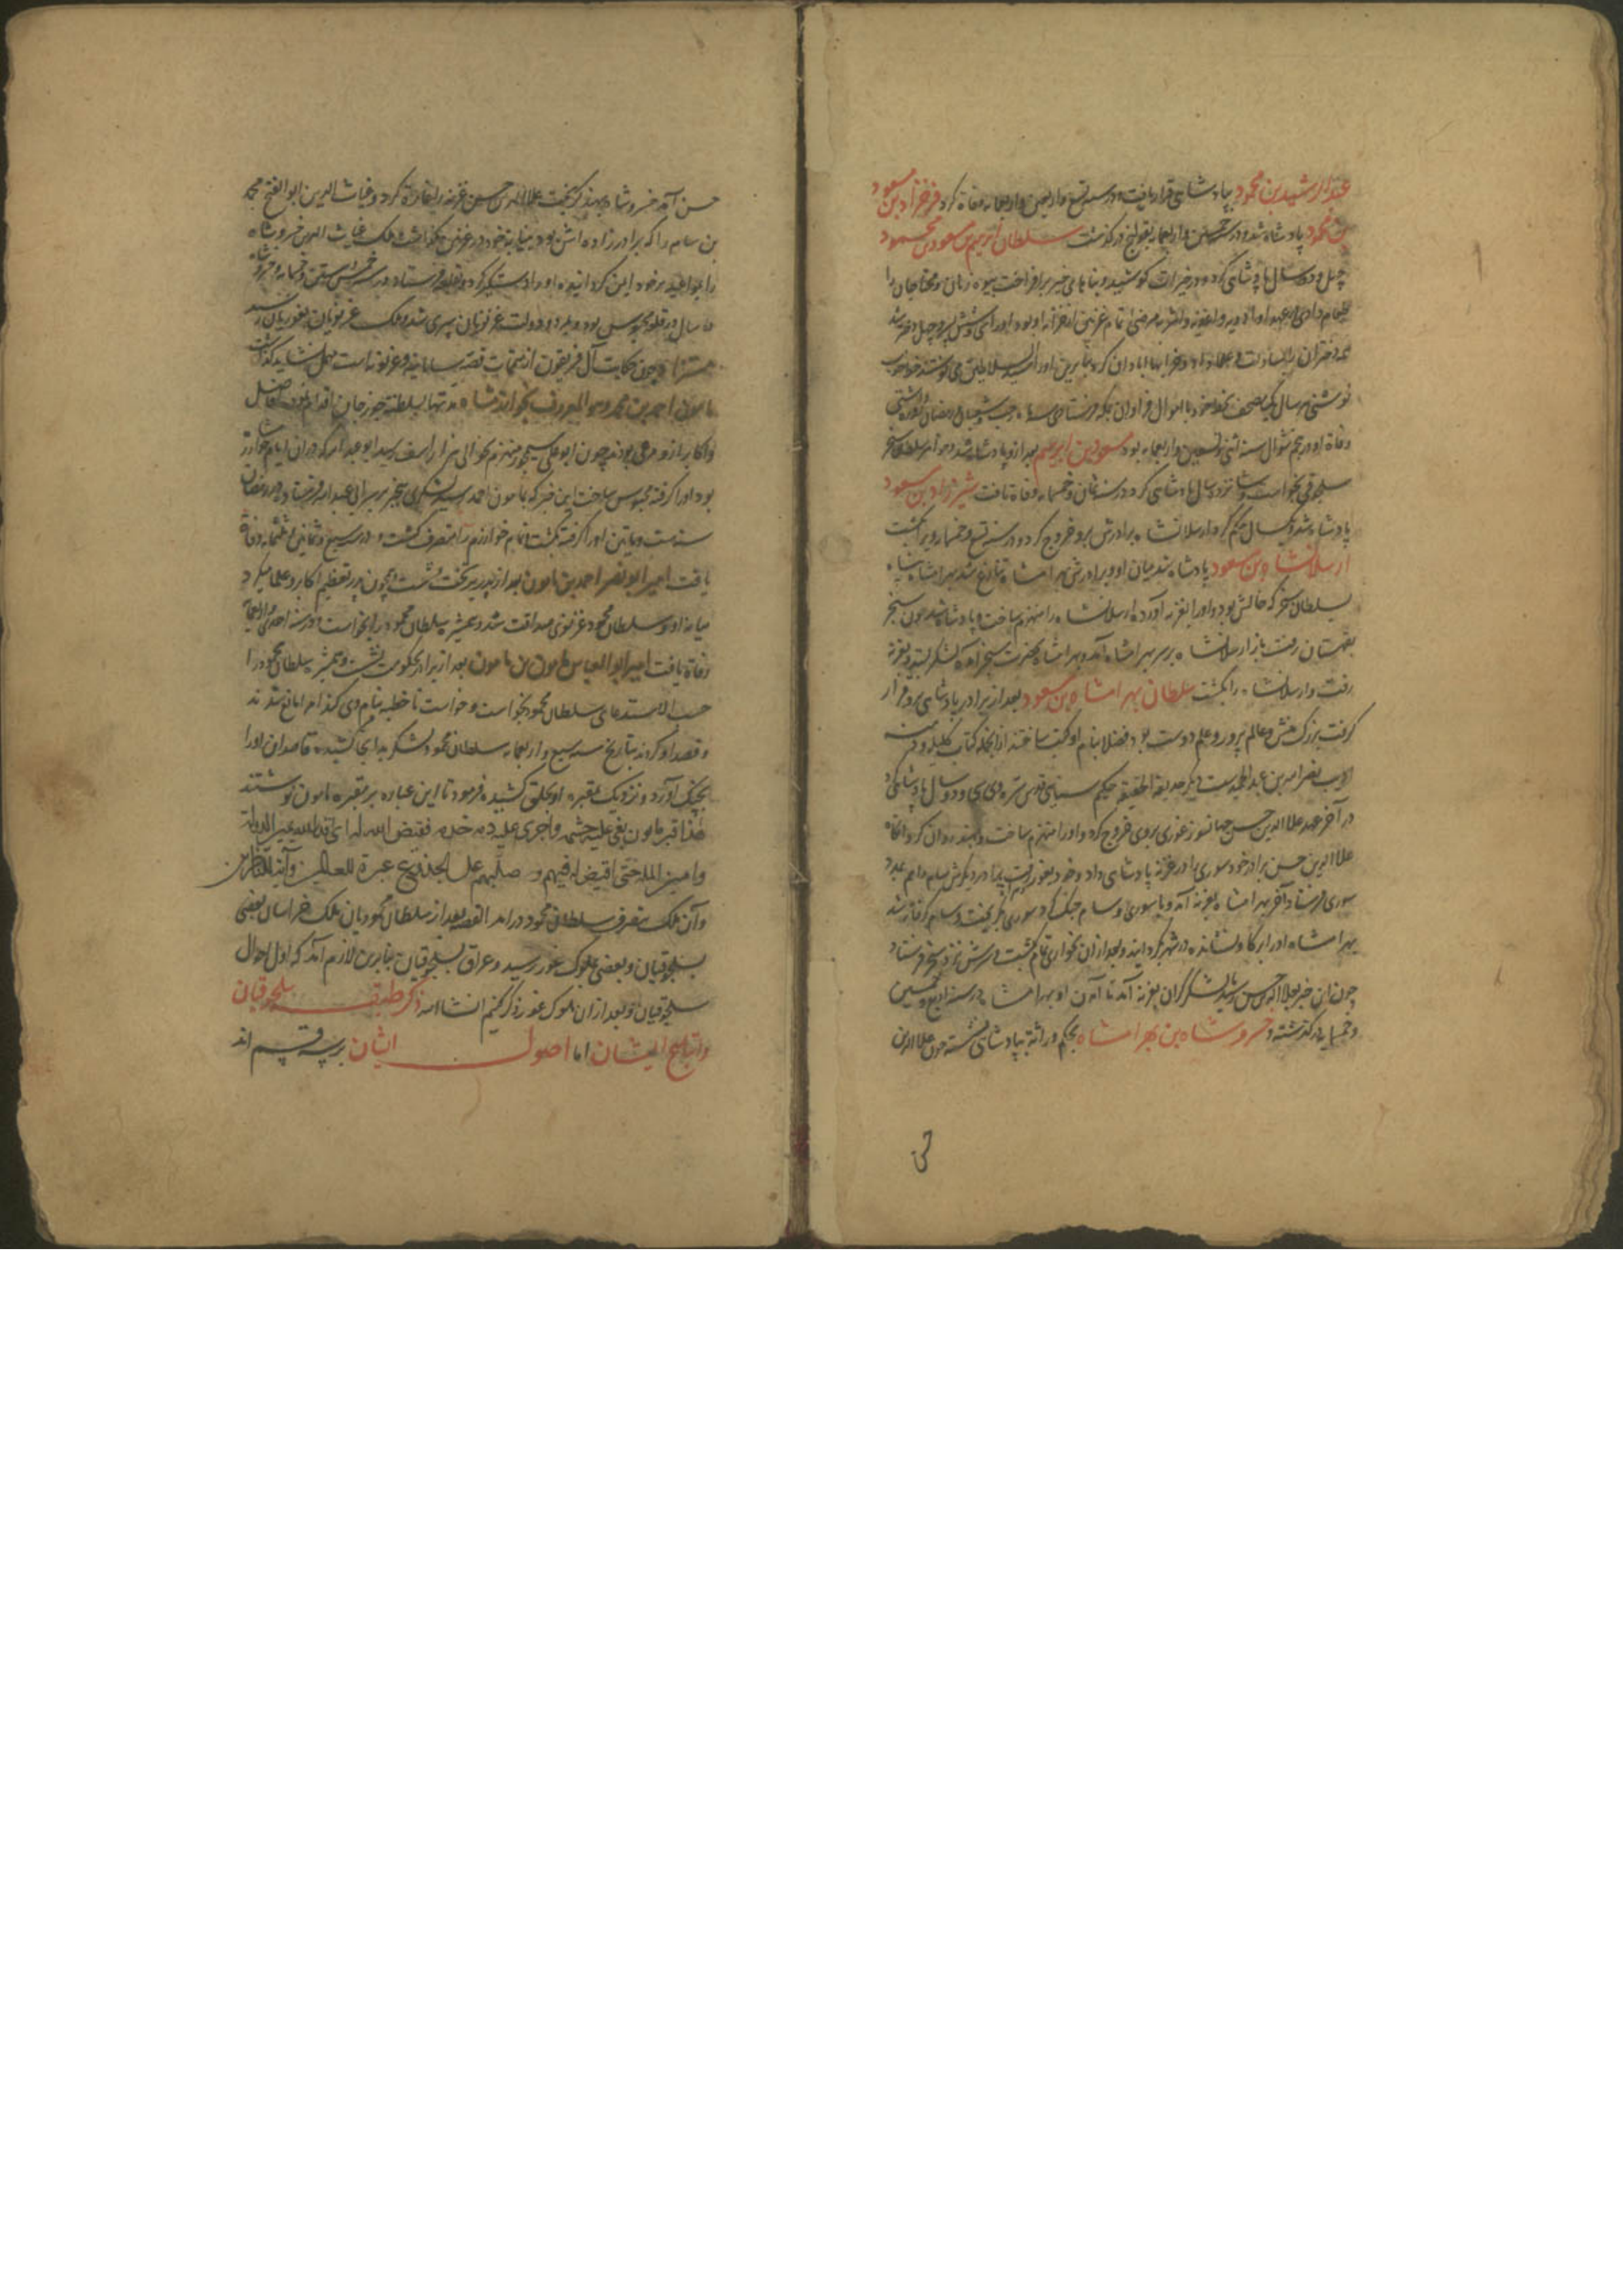 عبدالرشید بن محمود بپادشاهی قرار یافت و در سنه تسع و اربعین و اربعمایه وفاة کرد فرخزاد بن مسعود
بن محمود پادشاه شد و در سنه خمسین و اربعمایه بقولنج درگذشت سلطان ابرهیم بن مسعود بن محمود
چهل و دو سال پادشاهی کرد و در خیرات کوشید و بناهای خیر برافراخت بیوه زنان و محتاجان را
طعام دادی و در عهد او ادویه و اغذیه و اشربه مرضی تمام غزنین از خزانه او بود و او را سی و شش پسر و چهل دختر بود
دختران را بسادات و علما داد و خرابها آبادان کرد بنابرین او را سید السلاطین می نوشتند خط خوب
نوشتی هر سال یک مصحف بخط خود با اموال فراوان بمکه فرستادی سه ماه رجب و شعبان و رمضان روزه داشتی
وفاة او در پنجم شوال سنه اثنی و تسعین و اربعمایه بود مسعود بن ابرهیم بعد ازو پادشاه شد و خواهر سلطان سنجر
سلجوقی بخواست و شانزده سال پادشاهی کرد در سنه ثمان و خمسمایه وفاة یافت شیرزاد بن مسعود
پادشاه شد و یکسال حکم کرد ارسلانشاه برادرش برو خروج کرد و در سنه تسع و خمسمایه ویرا بکشت
ارسلانشاه بن مسعود پادشاه شد میان او و برادرش بهرامشاه تنازع شد بهرامشاه پناه
بسلطان سنجر که خالش بود برد و او را بغزنه آورد و ارسلانشاه را منهزم ساخت و پادشاه شد چون سنجر
بقهستان رفت باز ارسلانشاه بر سر بهرامشاه آمد و بهرامشاه بحضرت سنجر آمد و لشکر بستد و بغزنه
رفت و ارسلانشاه را بکشت سلطان بهرامشاه بن مسعود بعد از برادر پادشاهی برو قرار
گرفت بزرگ منش و عالم پرور و علم دوست بود فضلا بنام او کتب ساختند از آنجمله کتاب کلیله و دمنه
ادیب نصرالله بن عبدالحمید ست و دیگر حدیقة الحقیقه حکیم سنایی قدس سره وی سی و دو سال پادشاهی کرد
در آخر عهد علاالدین حسین جهانسوز غوری بروی خروج کرد و او را منهزم ساخت و بهند روان کرد آنگاه
علاالدین حسن برادر خود سوری را در غزنه پادشاهی داد و خود بغور رفت برادر دیگرش سام را هم بمدد
سوری فرستاد آخر بهرامشاه بغزنه آمد و با سوری و سام جنگ کرد سوری بگریخت و سام گرفتار شد
بهرامشاه او را بر گاو نشانده در شهر بگردانید و بعد از آن بخواری تمام بکشت و سرش نزد سنجر فرستاد
چون این خبر بعلاالدین حسن رسید با لشکر گران بغزنه آمد تا آمدن او بهرامشاه در سنه اربع و خمسین
و خمسمایه درگذشته و خسروشاه بن بهرامشاه بحکم وراثة بپادشاهی نشسته چون علاالدین
حسن
حسن آمد خسروشاه بهند گریخت علاالدین حسین غزنه را غارة کرد و غیاث الدین ابوالفتح محمد
بن سام را که برادرزاده اش بود بنیابة خود در غزنین بگذاشت ملک غیاث الدین خسروشاه
را بمواعید بر خود ایمن گردانیده او را دستگیر کرد و بقلعه فرستاد در سنه خمس و ستین و خمسمایه و خسروشاه
ده سال در قلعه محبوس بود و بمرد و دولت غزنویان سپری شد و ملک غزنویان بغوریان رسید
و چون حکایت آل فریغون از متممات قصه سامانیه و غزنویه است مهمل نشاید گذاشت
مامون احمد بن محمد و هو المعروف بخوارزمشاه مدتها بسلطنة جوزجان اقدام نمود افاضل
و اکابر ازو مرعی بودند چون ابوعلی سیمجور منهزم بحوالی هزاراسب رسید ابوعبدالله که در آن ایام خوارزمشاه
بود او را گرفته محبوس ساخت این خبر که بمامون احمد رسید لشکری بخبر بر سر ابی عبدالله فرستاد در رمضان
سنه ست و ثمانین او را گرفته بکشت و تمام خوارزم را متصرف گشت و در سنه سبع و ثمانین و ثلثمایه وفاة
یافت امیر ابونصر احمد بن مامون بعد از پدر بر تخت نشست و همچون پدر تعظیم اکابر و علما میکرد
میانه او و سلطان محمود غزنوی صداقت شد و همشیره سلطان محمود را بخواست و در سنه احدی و اربعمایه
وفاة یافت امیر ابوالعباس مامون بن مامون بعد از برادر بحکومت بنشست و همشیره سلطان محمود را
حسب الاستدعای سلطان محمود بخواست و خواست تا خطبه بنام وی کند امرا مانع شدند
و قصد او کردند بتاریخ سنه سبع و اربعمایه سلطان محمود لشکر بدانجا کشیده قاصدان او را
بچنگ آورد و نزدیک بمقبره او بحلق کشیده فرمود تا این عباره بر مقبره مامون نوشتند
هذا قبر مامون بغی علیه حشمه و اجری علیه دمه خدمه فقیض الله له السلطان یمین الدولة
و امین الملة حتی اقتص له فیهم و صلبهم علی الجذوع عبرة للعالمین و آیة للناظرین
و آن ملک بتصرف سلطان محمود درآمد القصه بعد از سلطان محمودیان ملک خراسان بعضی
بسلجوقیان و بعضی بملوک غور رسید و عراق بسلجوقیان بنابرین لازم آمد که اول احوال
سلجوقیان و بعد از آن ملوک غور ذکر کنیم انشاالله ذکر طبقه سلجوقیان
و اتباع ایشان اما اصول ایشان بر سه قسم اند